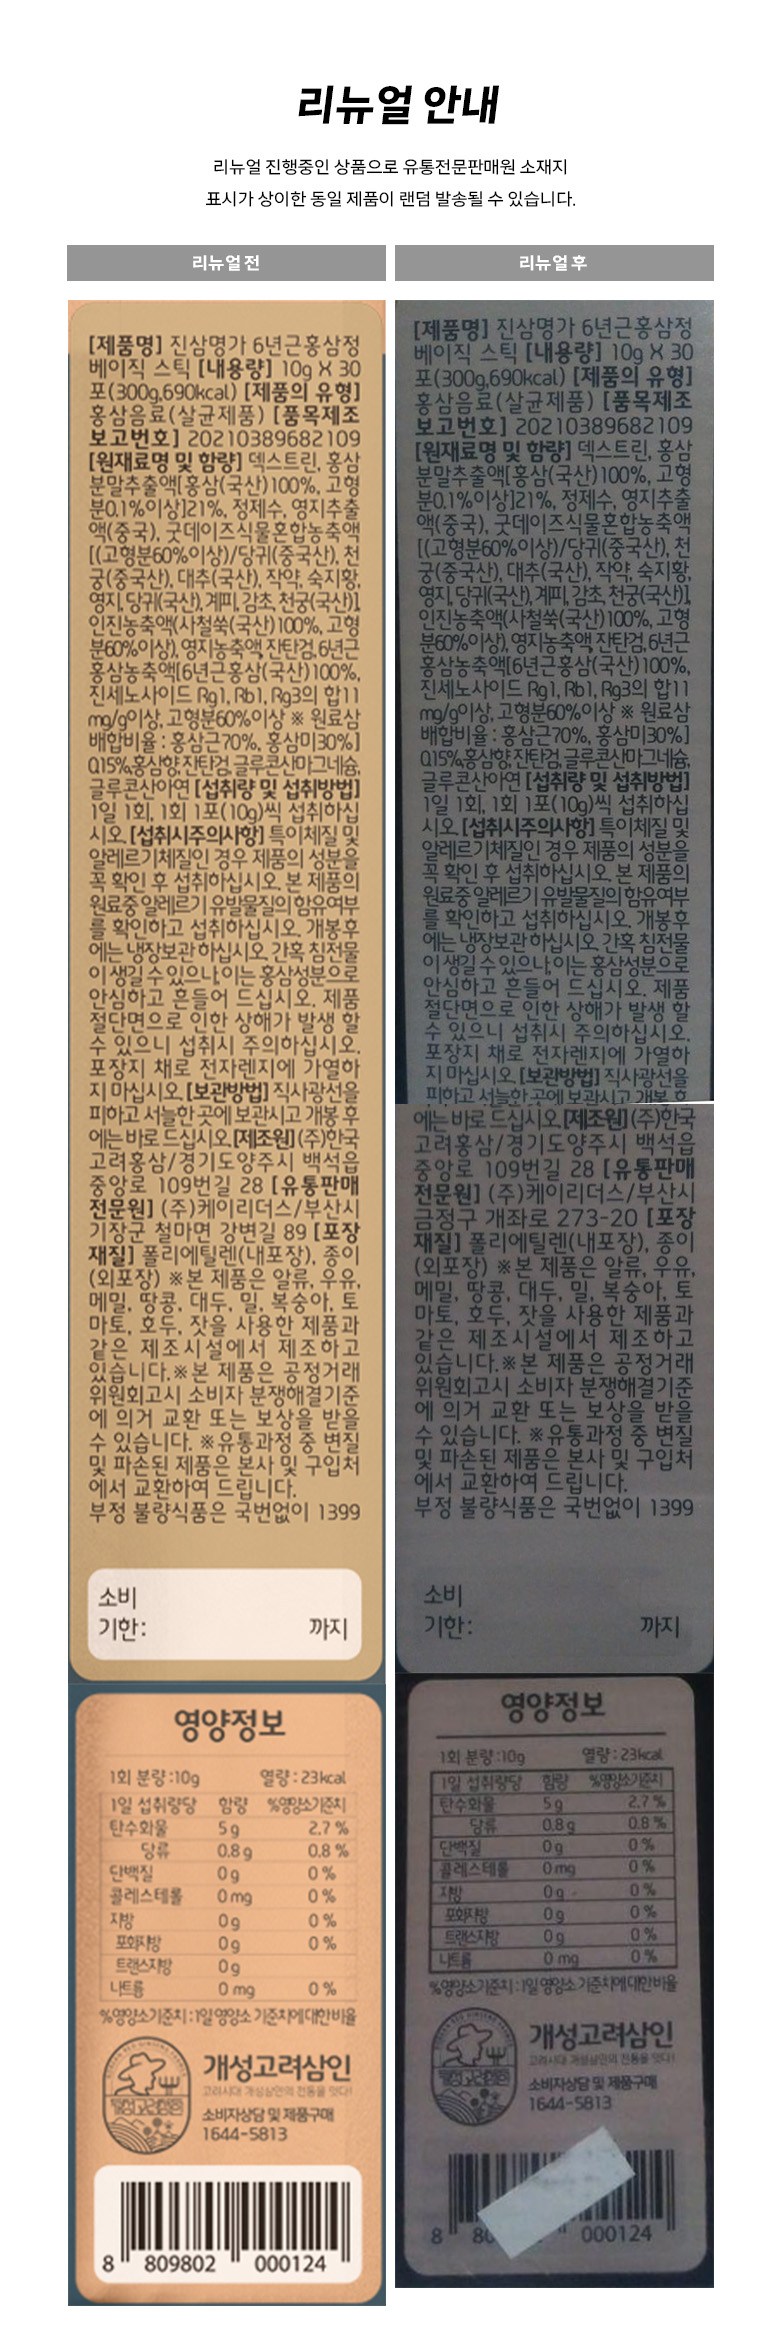 리뉴얼 안내
리뉴얼 진행중인 상품으로 유통전문판매원 소재지
표시가 상이한 동일 제품이 랜덤 발송될 수 있습니다.
리뉴얼 전
[제품명] 진삼명가 6년근홍삼정
베이직 스틱 [내용량] 10g X 30
포(300g,690kcal) [제품의 유형]
홍삼음료(살균제품) [품목제조
보고번호] 20210389682109
[원재료명 및 함량] 덱스트린, 홍삼
분말추출액[홍삼(국산)100%, 고형
분0.1%이상]21%, 정제수, 영지추출
액(중국), 굿데이즈식물혼합농축액
[(고형분60%이상)/당귀(중국산), 천
궁(중국산), 대추(국산), 작약, 숙지황,
영지, 당귀(국산), 계피, 감초, 천궁(국산)],
인진농축액(사철쑥(국산)100%, 고형
분60%이상), 영지농축액, 잔탄검, 6년근
홍삼농축액[6년근홍삼(국산)100%,
진세노사이드 Rg1, Rb1, Rg3의 합11
mg/g이상, 고형분60%이상 ※ 원료삼
배합비율 : 홍삼근70%, 홍삼미30%]
0.15%,홍삼향,잔탄검,글루콘산마그네슘,
글루콘산아연 [섭취량 및 섭취방법]
1일 1회, 1회 1포(10g)씩 섭취하십
시오. [섭취시주의사항] 특이체질 및
알레르기체질인 경우 제품의 성분을
꼭 확인 후 섭취하십시오. 본 제품의
원료중 알레르기 유발물질의 함유여부
를 확인하고 섭취하십시오. 개봉후
에는 냉장보관 하십시오. 간혹 침전물
이 생길 수 있으나,이는 홍삼성분으로
안심하고 흔들어 드십시오. 제품
절단면으로 인한 상해가 발생 할
수 있으니 섭취시 주의하십시오.
포장지 채로 전자렌지에 가열하
지 마십시오. [보관방법] 직사광선을
피하고 서늘한 곳에 보관시고 개봉 후
에는 바로 드십시오.[제조원] (주)한국
고려홍삼/경기도양주시 백석읍
중앙로 109번길 28 [유통판매
전문원] (주)케이리더스/부산시
기장군 철마면 강변길 89 [포장
재질] 폴리에틸렌(내포장), 종이
(외포장) ※본 제품은 알류, 우유,
메밀, 땅콩, 대두, 밀, 복숭아, 토
마토, 호두, 잣을 사용한 제품과
같은 제조시설에서 제조하고
있습니다.※본 제품은 공정거래
위원회고시 소비자 분쟁해결기준
에 의거 교환 또는 보상을 받을
수 있습니다. ※유통과정 중 변질
및 파손된 제품은 본사 및 구입처
에서 교환하여 드립니다.
부정 불량식품은 국번없이 1399
소비
기한: 까지
영양정보
1회 분량:10g 열량:23kcal
1일 섭취량당 함량 %영양소기준치
탄수화물 5g 2.7%
당류 0.8g 0.8%
단백질 0g 0%
콜레스테롤 0mg 0%
지방 0g 0%
포화지방 0g 0%
트랜스지방 0g
나트륨 0mg 0%
%영양소기준치:1일영양소 기준치에대한비율
개성고려삼인
고려시대 개성삼인의 전통을 잇다!
소비자상담 및 제품구매
1644-5813
8 809802 000124
리뉴얼 후
[제품명] 진삼명가 6년근홍삼정
베이직 스틱 [내용량] 10g X 30
포(300g,690kcal) [제품의 유형]
홍삼음료(살균제품) [품목제조
보고번호] 20210389682109
[원재료명 및 함량] 덱스트린, 홍삼
분말추출액[홍삼(국산)100%, 고형
분0.1%이상]21%, 정제수, 영지추출
액(중국), 굿데이즈식물혼합농축액
[(고형분60%이상)/당귀(중국산), 천
궁(중국산), 대추(국산), 작약, 숙지황,
영지, 당귀(국산), 계피, 감초, 천궁(국산)],
인진농축액(사철쑥(국산)100%, 고형
분60%이상), 영지농축액, 잔탄검, 6년근
홍삼농축액[6년근홍삼(국산)100%,
진세노사이드 Rg1, Rb1, Rg3의 합11
mg/g이상, 고형분60%이상 ※ 원료삼
배합비율 : 홍삼근70%, 홍삼미30%]
0.15%,홍삼향,잔탄검,글루콘산마그네슘,
글루콘산아연 [섭취량 및 섭취방법]
1일 1회, 1회 1포(10g)씩 섭취하십
시오. [섭취시주의사항] 특이체질 및
알레르기체질인 경우 제품의 성분을
꼭 확인 후 섭취하십시오. 본 제품의
원료중 알레르기 유발물질의 함유여부
를 확인하고 섭취하십시오. 개봉후
에는 냉장보관 하십시오. 간혹 침전물
이 생길 수 있으나,이는 홍삼성분으로
안심하고 흔들어 드십시오. 제품
절단면으로 인한 상해가 발생 할
수 있으니 섭취시 주의하십시오.
포장지 채로 전자렌지에 가열하
지 마십시오. [보관방법] 직사광선을
피하고 서늘한 곳에 보관시고 개봉 후
에는 바로 드십시오.[제조원] (주)한국
고려홍삼/경기도양주시 백석읍
중앙로 109번길 28 [유통판매
전문원] (주)케이리더스/부산시
금정구 개좌로 273-20 [포장
재질] 폴리에틸렌(내포장), 종이
(외포장) ※본 제품은 알류, 우유,
메밀, 땅콩, 대두, 밀, 복숭아, 토
마토, 호두, 잣을 사용한 제품과
같은 제조시설에서 제조하고
있습니다.※본 제품은 공정거래
위원회고시 소비자 분쟁해결기준
에 의거 교환 또는 보상을 받을
수 있습니다. ※유통과정 중 변질
및 파손된 제품은 본사 및 구입처
에서 교환하여 드립니다.
부정 불량식품은 국번없이 1399
소비
기한: 까지
영양정보
1회 분량:10g 열량:23kcal
1일 섭취량당 함량 %영양소기준치
탄수화물 5g 2.7%
당류 0.8g 0.8%
단백질 0g 0%
콜레스테롤 0mg 0%
지방 0g 0%
포화지방 0g 0%
트랜스지방 0g 0%
나트륨 0mg 0%
%영양소기준치:1일영양소 기준치에대한비율
개성고려삼인
고려시대 개성삼인의 전통을 잇다!
소비자상담 및 제품구매
1644-5813
8 80 000124